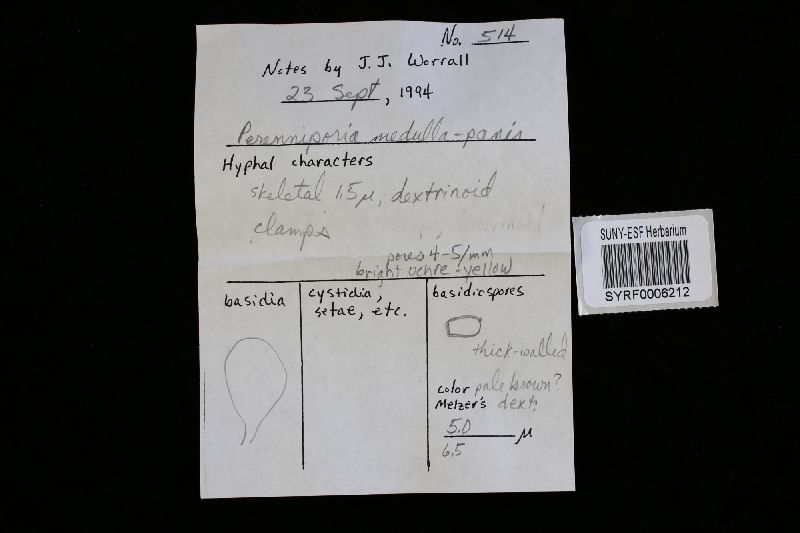 No. 514
Notes by J.J. Worrall
23 Sept, 1994
Perenniporia medulla-panis
Hyphal characters
skeletal 1.5µ, dextrinoid
clamps
pores 4-5/mm
bright ochre-yellow
basidia
cystidia,
setae, etc.
basidiospores
thick-walled
color pale brown?
Melzer's dext.
5.0 µ
6.5
SUNY-ESF Herbarium
SYRF0006212